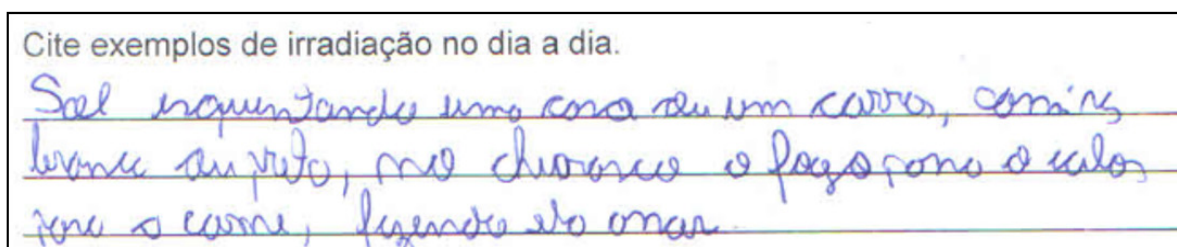 Cite exemplos de irradiação no dia a dia.
Sol esquentando uma casa ou um carro, camisa
branca ou preto, no churrasco o fogo passa o calor
para a carne, fazendo ela assar